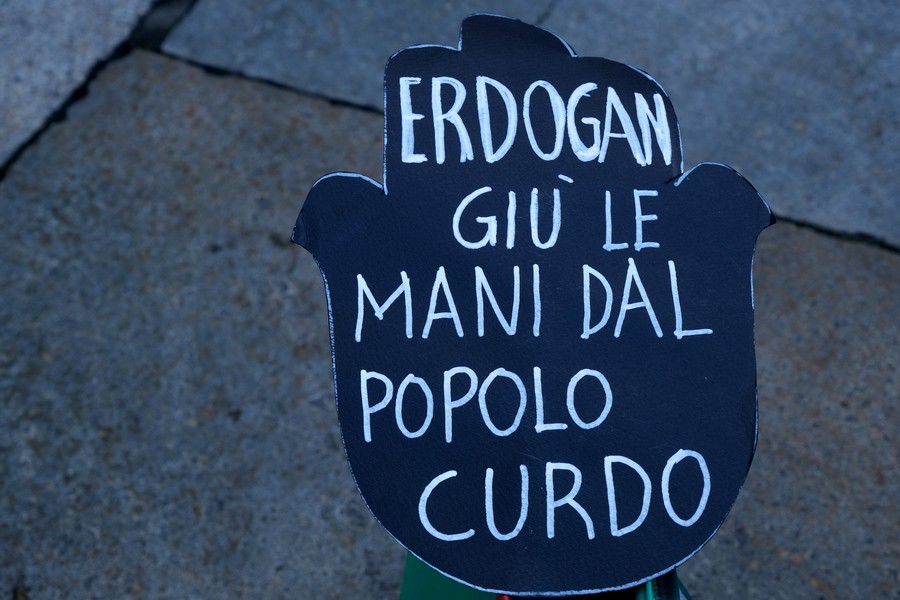 ERDOGAN
GIÙ LE
MANI DAL
POPOLO
CURDO